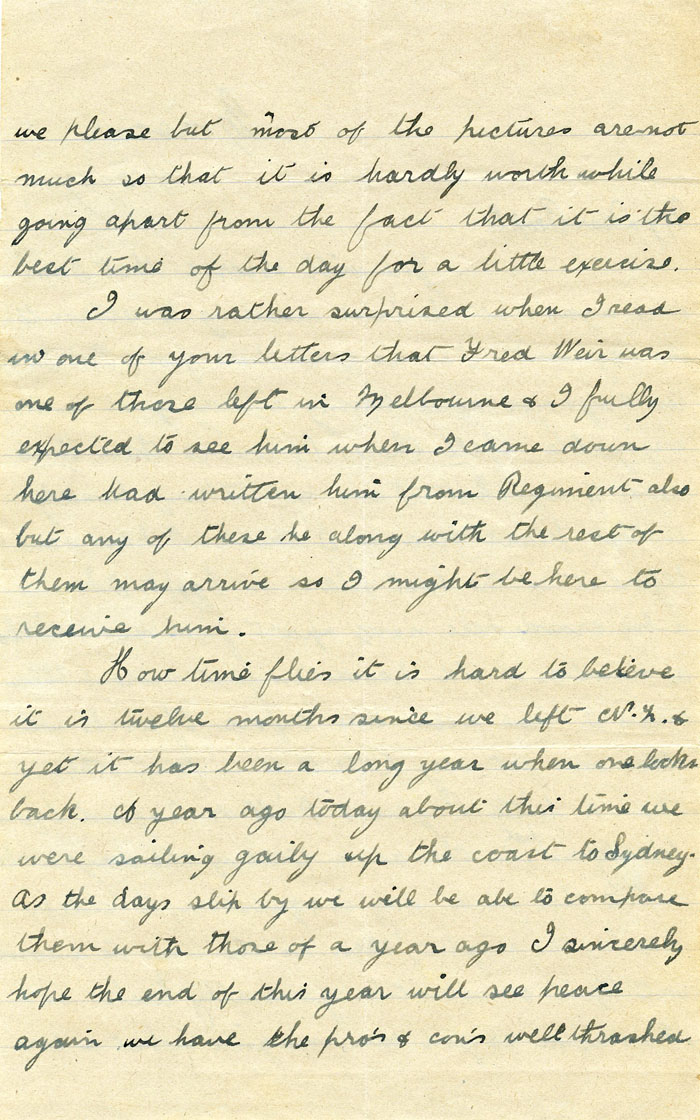 we please but most of the pictures are not
much so that it is hardly worth while
going apart from the fact that it is the
best time of the day for a little exercise.
I was rather surprised when I read
in one of your letters that Fred Weir was
one of those left in Melbourne & I fully
expected to see him when I came down
here had written him from Regiment also
but any of these he along with the rest of
them may arrive so I might be here to
receive him.
How time flies it is hard to believe
it is twelve months since we left N.Z. &
yet it has been a long year when one looks
back. A year ago today about this time we
were sailing gaily up the coast to Sydney.
As the days slip by we will be abe to compare
them with those of a year ago I sincerely
hope the end of this year will see peace
again we have the pro's & con's well thrashed